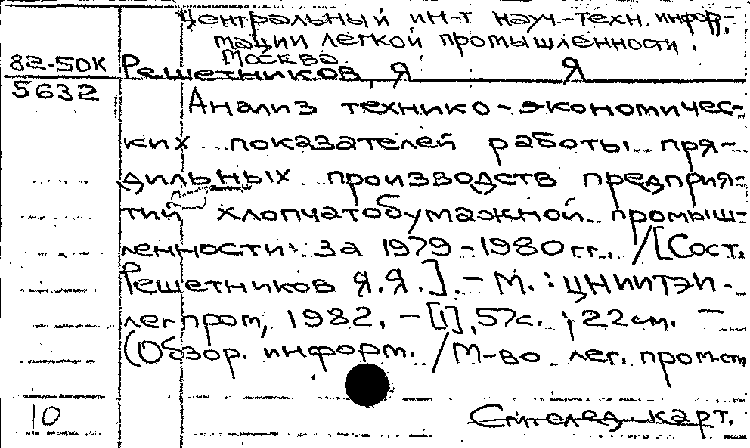 Центральный ин-т науч.-техн. инфор-
мации легкой промышленности.
Москва.
82-50К Решетников, Я Я
5632 Анализ технико-экономичес-
ких показателей работы пря-
дильных производств предприя-
тий хлопчатобумажной промыш-
ленности за 1979-1980 гг. /[Сост.
Решетников Я.Я.]. - М. : ЦНИИТЭИ-
легпром, 1982. - [1], 57с. ; 22 см. -
(Обзор. информ. / М-во лег. пром-сти
10 карт.